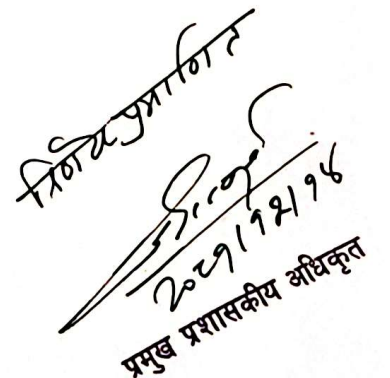 निर्णय प्रमाणित
२०८१।१२।१४
प्रमुख प्रशासकीय अधिकृत